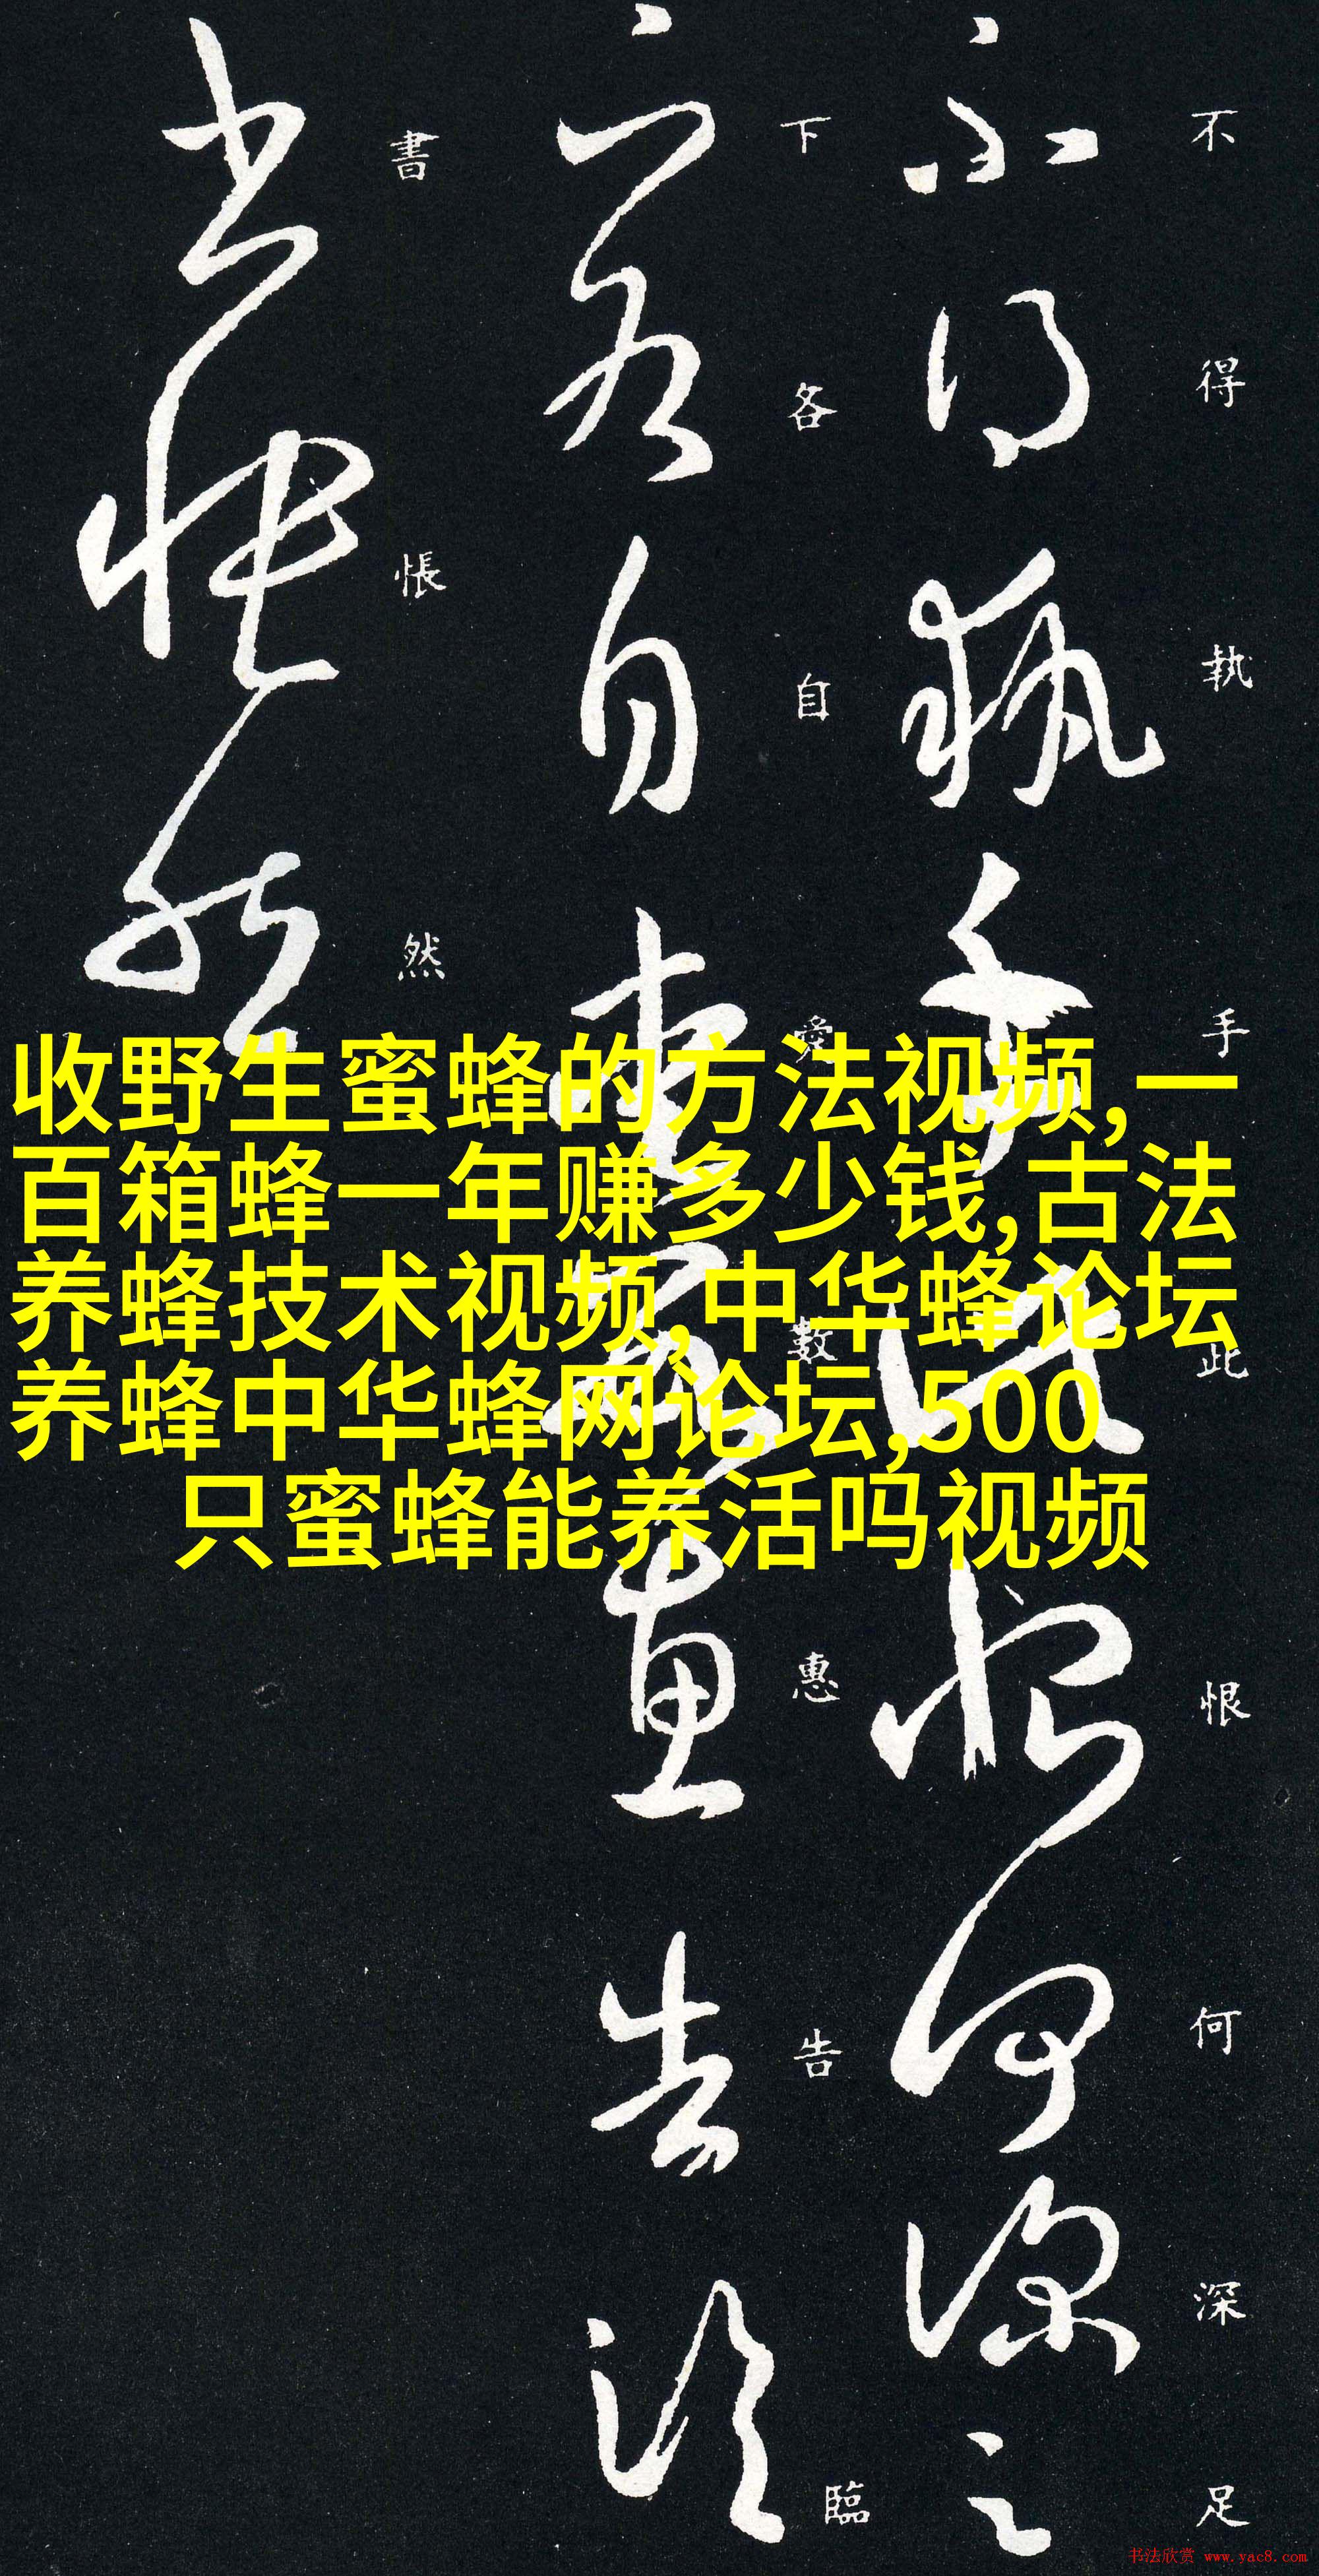 不得執手此恨何深足
不得執手此恨何深足
下各自愛數惠告臨
下各自愛數惠告臨
書悵然
書悵然
收野生蜜蜂的方法视频,一
百箱蜂一年赚多少钱,古法
养蜂技术视频,中华蜂论坛
养蜂中华蜂网论坛,500
只蜜蜂能养活吗视频
书法欣赏 www.yac8.com